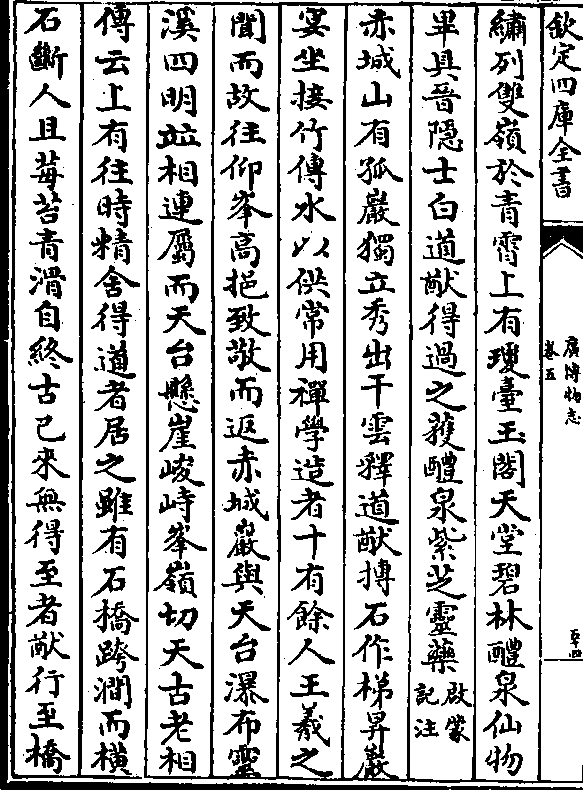 欽定四庫全書
廣博物志
卷五
繡列雙嶺於青霄上有瓊臺玉閣天堂碧林醴泉仙物
畢具晉隱士白道猷得過之獲醴泉紫芝靈藥啟蒙
記注
赤城山有孤巖獨立秀出干雲釋道猷摶石作梯昇巖
宴坐接竹傳水以供常用禪學造者十有餘人王羲之
聞而故往仰峯高挹致敬而返赤城巖與天台瀑布靈
溪四明並相連屬而天台懸崖峻峙峯嶺切天古老相
傳云上有往時精舍得道者居之雖有石橋跨澗而橫
石斷人且莓苔青滑自終古已來無得至者猷行至橋